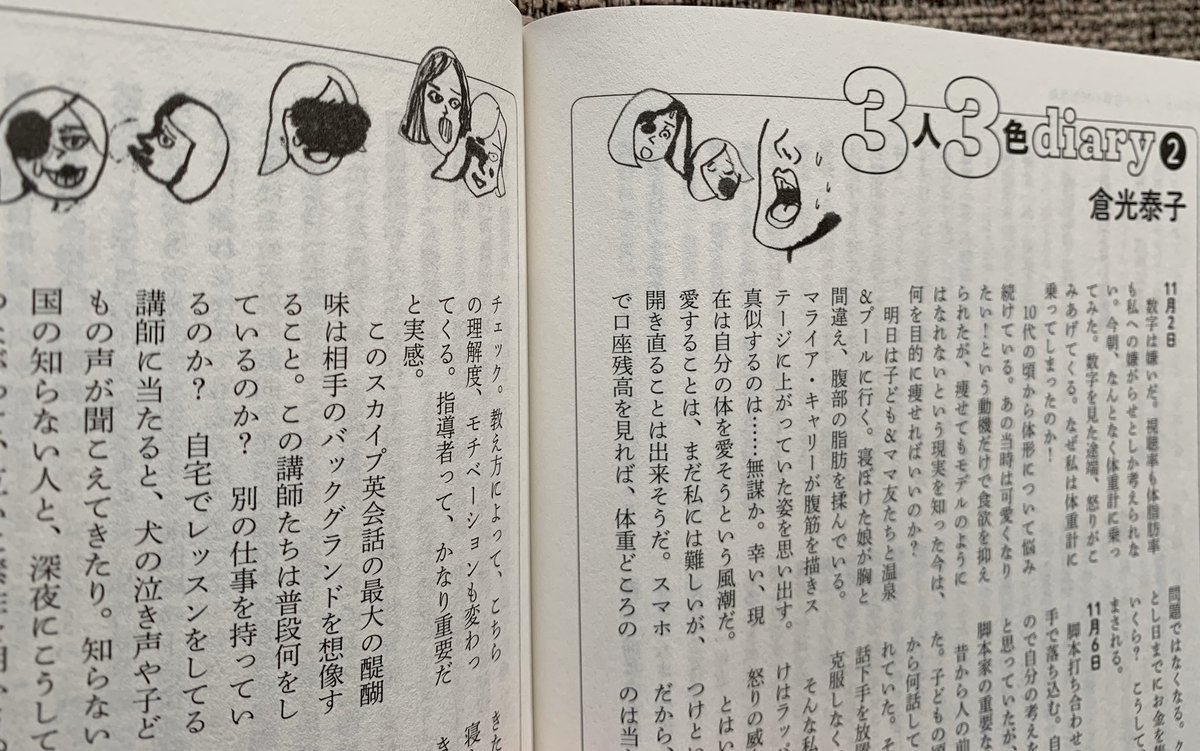 3人3色diary❷
倉光泰子
11月2日
数字は嫌いだ。視聴率も体脂肪率
も私への嫌がらせとしか考えられな
い。今朝、なんとなく体重計に乗っ
てみた。数字を見た途端、怒りがこ
みあげてくる。なぜ私は体重計に
乗ってしまったのか！
10代の頃から体形について悩み
続けている。あの当時は可愛くなり
たい！という動機だけで食欲を抑え
られたが、痩せてもモデルのように
はなれないという現実を知った今は、
何を目的に痩せればいいのか？
明日は子ども＆ママ友たちと温泉
＆プールに行く。寝ぼけた娘が胸と
間違え、腹部の脂肪を揉んでいる。
マライア・キャリーが腹筋を描きス
テージに上がっていた姿を思い出す。
真似するのは……無謀か。幸い、現
在は自分の体を愛そうという風潮だ。
愛することは、まだ私には難しいが、
開き直ることは出来そうだ。スマホ
で口座残高を見れば、体重どころの
問題ではなくなる。
とし日までにお金を
いくら？　こうして
まされる。
11月6日
脚本打ち合わせ
手で落ち込む。自
ので自分の考えを
と思っていたが
脚本家の重要な
昔から人の前
た。子どもの頃
から何話して
れていた。そ
話下手を放置
克服しなく
そんな私
けはラッパ
怒りの威
とはい
つけとい
だから、
のは当
チェック。教え方によって、こちら
の理解度、モチベーションも変わっ
てくる。指導者って、かなり重要だ
と実感。
このスカイプ英会話の最大の醍醐
味は相手のバックグランドを想像す
ること。この講師たちは普段何をし
ているのか？　別の仕事を持ってい
るのか？　自宅でレッスンをしてる
講師に当たると、犬の泣き声や子ど
もの声が聞こえてきたり。知らない
国の知らない人と、深夜にこうして
きた
寝
き